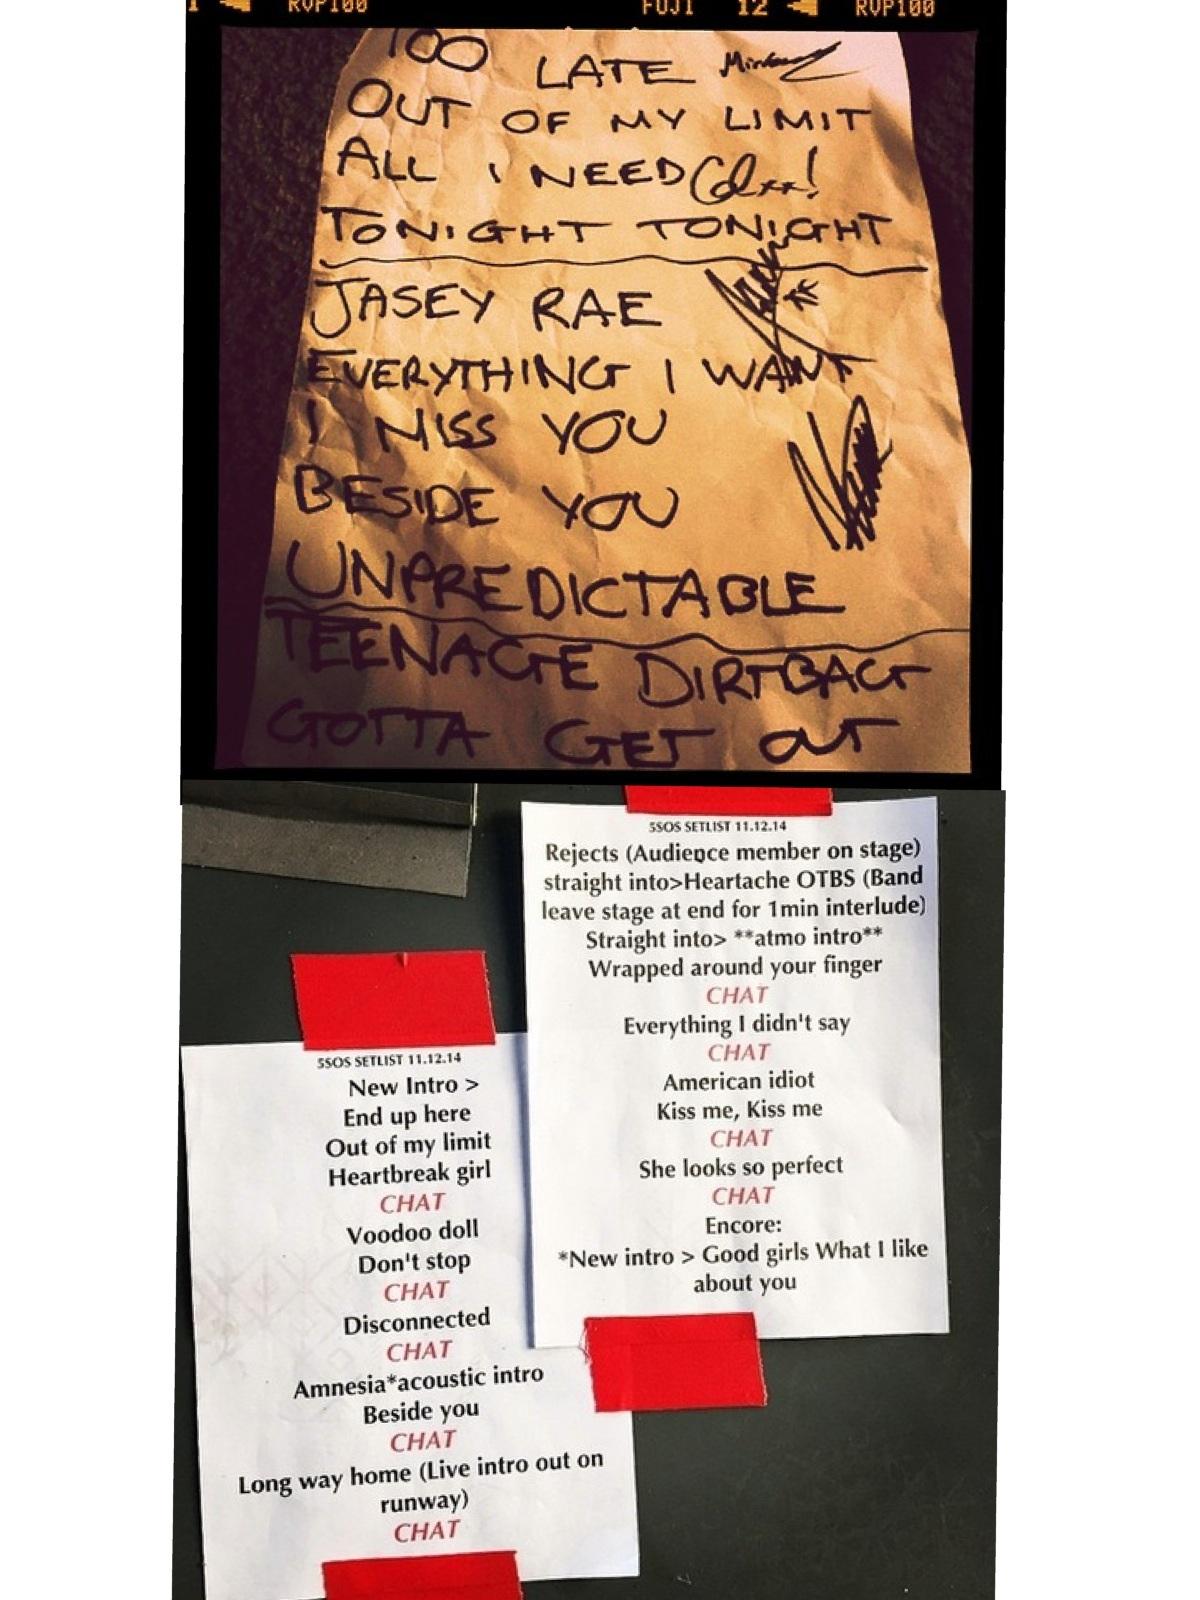 RVP100 FUJI 12 RVP100
TOO LATE
OUT OF MY LIMIT
ALL I NEED
TONIGHT TONIGHT
JASEY RAE
EVERYTHING I WANT
I MISS YOU
BESIDE YOU
UNPREDICTABLE
TEENAGE DIRTBAG
GOTTA GET OUT
5SOS SETLIST 11.12.14
New Intro >
End up here
Out of my limit
Heartbreak girl
CHAT
Voodoo doll
Don't stop
CHAT
Disconnected
CHAT
Amnesia*acoustic intro
Beside you
CHAT
Long way home (Live intro out on
runway)
CHAT
5SOS SETLIST 11.12.14
Rejects (Audience member on stage)
straight into>Heartache OTBS (Band
leave stage at end for 1min interlude)
Straight into> **atmo intro**
Wrapped around your finger
CHAT
Everything I didn't say
CHAT
American idiot
Kiss me, Kiss me
CHAT
She looks so perfect
CHAT
Encore:
*New intro > Good girls What I like
about you